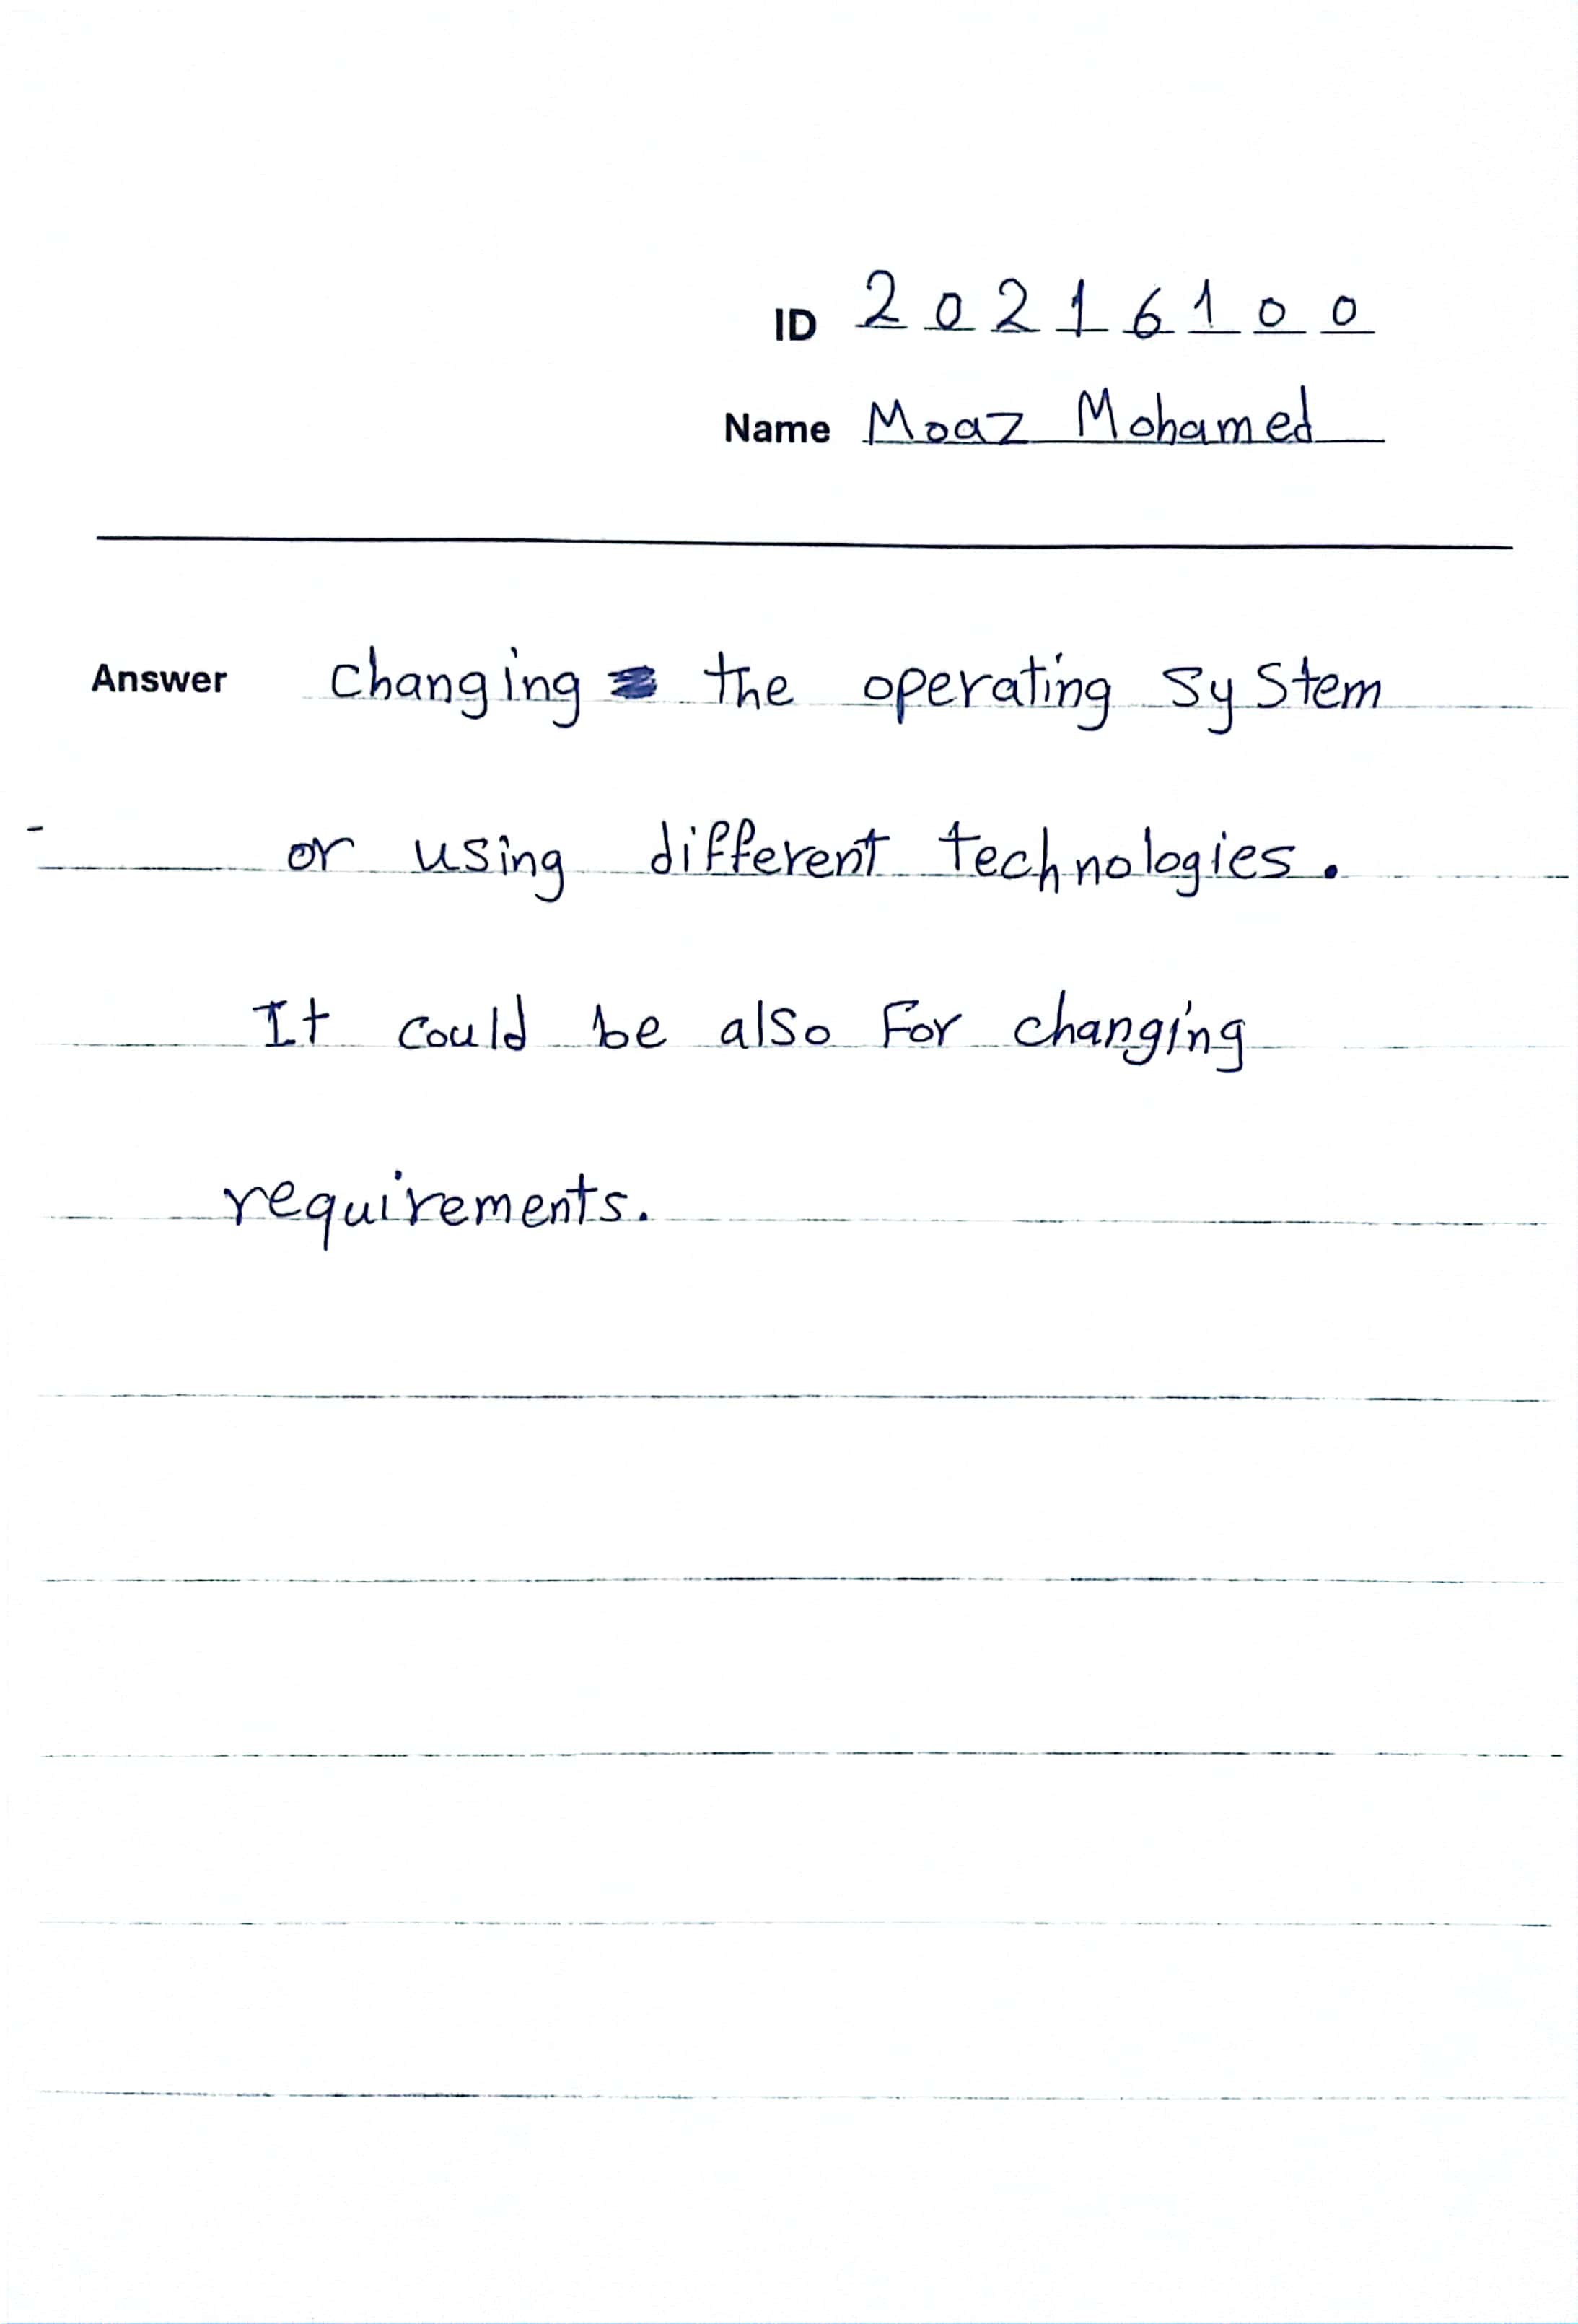 ID 20216100
Name Moaz Mohamed
Answer Changing the operating system
or using different technologies.
It could be also For changing
requirements.